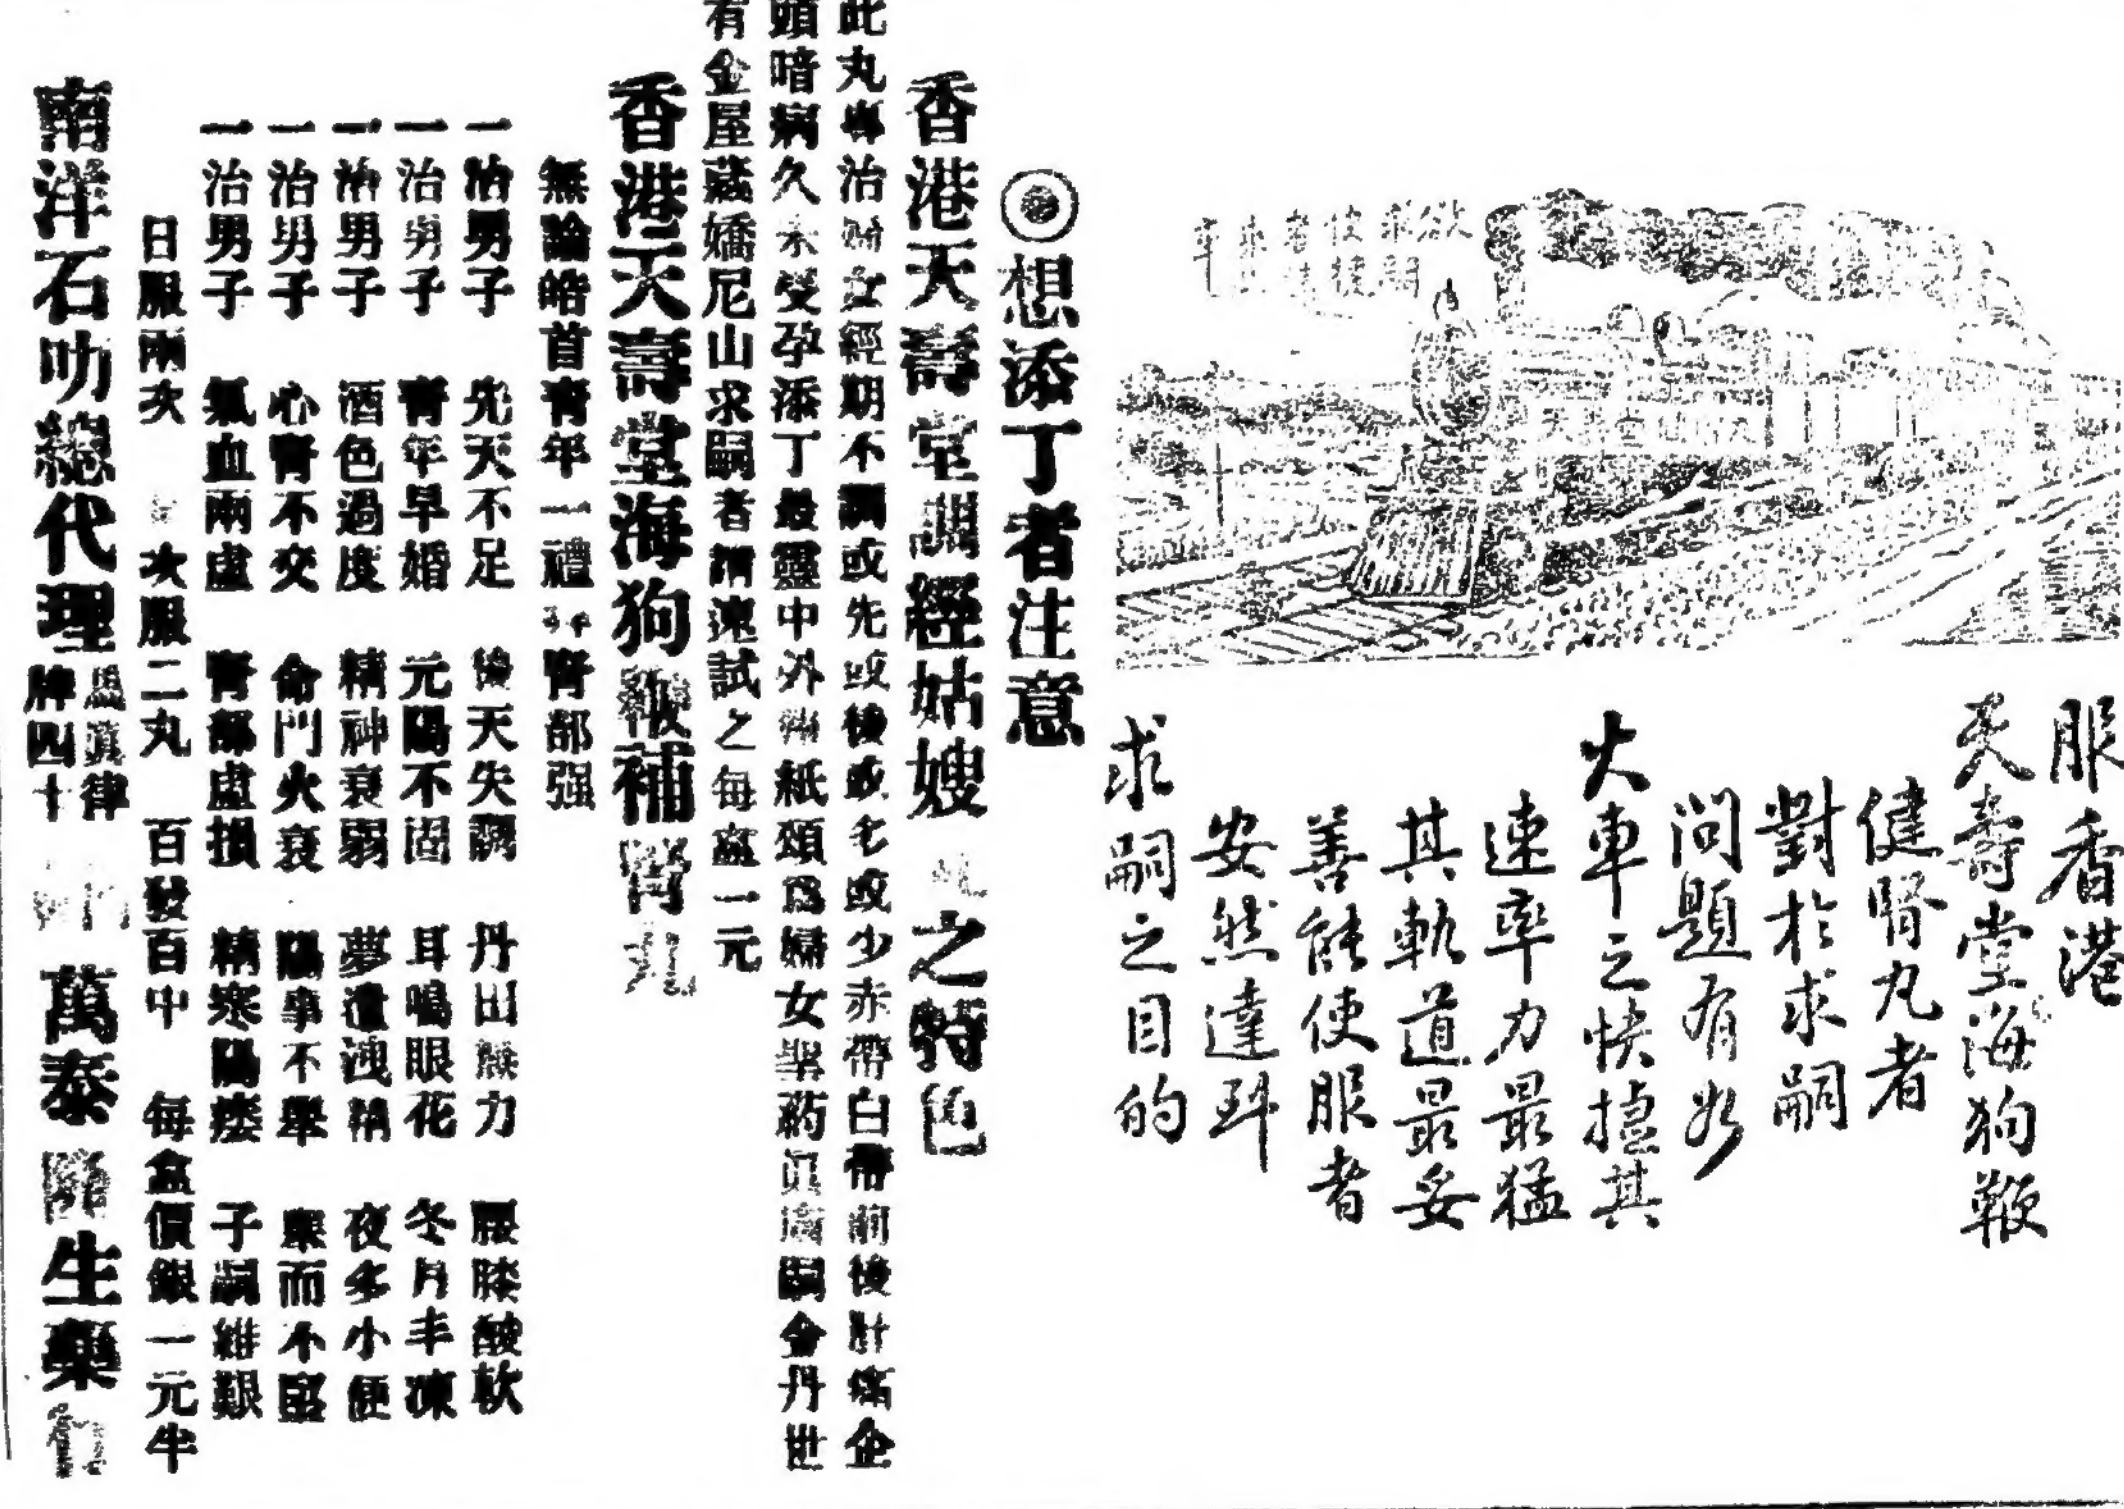 欲求嗣
快捷
者
服香港
天壽堂海狗鞭
健腎丸者
對於求嗣
問題有如
火車之快捷其
速率力最猛
其軌道最妥
善能使服者
安然達到
求嗣之目的
想添丁者注意
香港天壽堂調經姑嫂丸之特色
此丸專治婦女經期不調或先或後或多或少赤帶白帶前後肚痛企
頭暗病久未受孕添丁最靈中外報紙頌為婦女聖药眞廣嗣金丹世
有金屋藏嬌尼山求嗣者請速試之每盒一元
香港天壽堂海狗鞭補腎丸
無論皓首青年一禮補腎部强
一治男子 先天不足 後天失調 丹田無力 腰膝酸軟
一治男子 青年早婚 元陽不固 耳鳴眼花 冬月丰凍
一治男子 酒色過度 精神衰弱 夢遺洩精 夜多小便
一治男子 心腎不交 命門火衰 陽事不舉 舉而不堅
一治男子 氣血兩虛 腎部虛損 精寒陽痿 子嗣維艱
日服兩次 次服二丸 百發百中 每盒價銀一元半
南洋石叻總代理 馬眞律
牌四十 萬泰隆生藥行